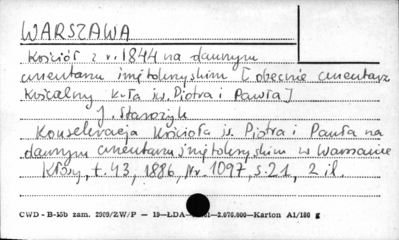 WARSZAWA
Kościół z r. 1844 na dawnym
cmentarzu świętokrzyskim [obecnie cmentarz
Kościelny K-ła św. Piotra i Pawła]
J. Starożyk
Konsekracja Kościoła św. Piotra i Pawła na
dawnym cmentarzu świętokrzyskim w Warszawie
Kłosy, t. 43, 1886, Nr. 1097, s. 21, 2 il.
CWD - B-15b zam. 2909/ZW/P — 19—LDA— 61—2.070.000—Karton A1/180 g